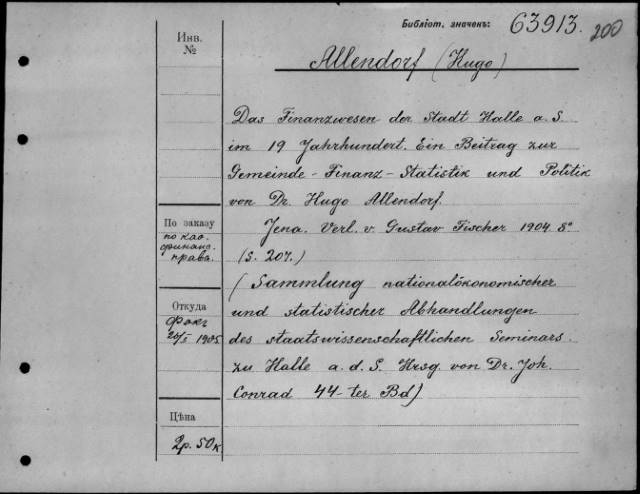 Библіот. значекъ: 63913. 200
Инв.
№
Allendorf (Hugo)
Das Finanzwesen der Stadt Halle a. S.
im 19 Jahrhundert. Ein Beitrag zur
Gemeinde-Finanz-Statistik und Politik
von Dr. Hugo Allendorf.
Jena. Verl. v. Gustav Fischer 1904. 8°
(S. 207.)
(Sammlung nationalökonomischer
und statistischer Abhandlungen
des staatswissenschaftlichen Seminars
zu Halle a. d. S. Hrsg. von Dr. Joh.
Conrad 44-ter Bd)
По заказу
по каѳ.
финанс.
права.
Откуда
Фокъ
20/I 1905
Цѣна
2р. 50к